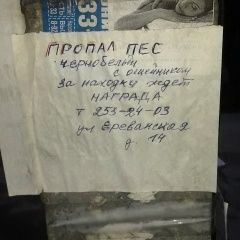 33
ПРОПАЛ ПЕС
чернобелый
с ошейником
за находку ждет
НАГРАДА
т 253-24-03
ул Ереванская
д. 14